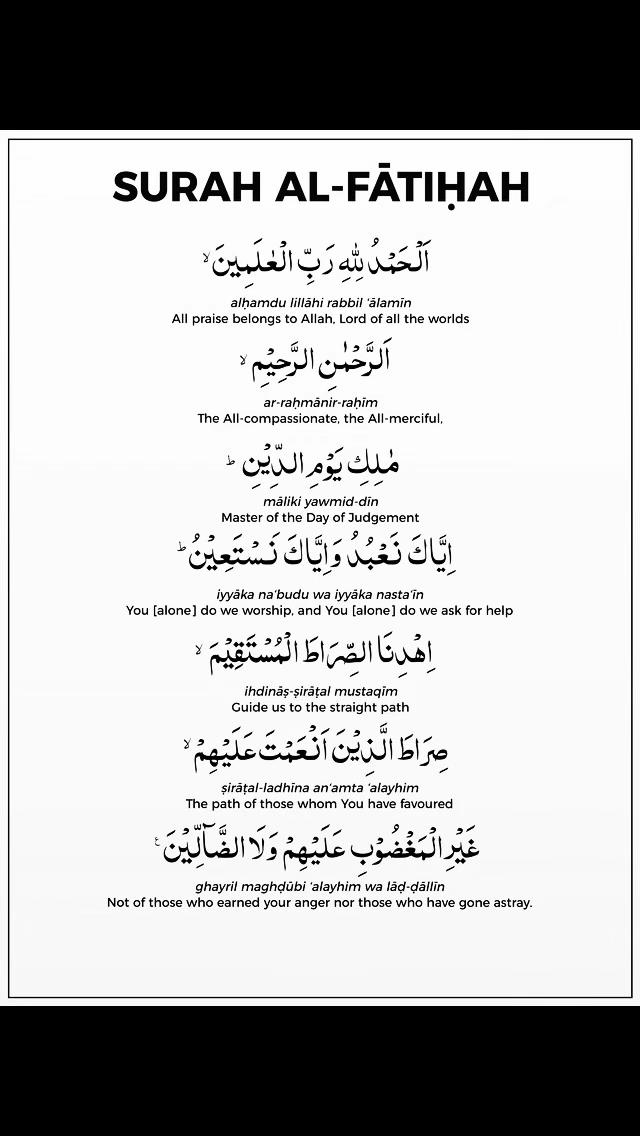 SURAH AL-FĀTIḤAH
اَلْحَمْدُ لِلّٰهِ رَبِّ الْعٰلَمِينَ ۙ
alḥamdu lillāhi rabbil ‘ālamīn
All praise belongs to Allah, Lord of all the worlds
اَلرَّحْمٰنِ الرَّحِيْمِ ۙ
ar-raḥmānir-raḥīm
The All-compassionate, the All-merciful,
مٰلِكِ يَوْمِ الدِّيْنِ ؕ
māliki yawmid-dīn
Master of the Day of Judgement
اِيَّاكَ نَعْبُدُ وَاِيَّاكَ نَسْتَعِيْنُ ؕ
iyyāka na‘budu wa iyyāka nasta‘īn
You [alone] do we worship, and You [alone] do we ask for help
اِهْدِنَا الصِّرَاطَ الْمُسْتَقِيْمَ ۙ
ihdināṣ-ṣirāṭal mustaqīm
Guide us to the straight path
صِرَاطَ الَّذِيْنَ اَنْعَمْتَ عَلَيْهِمْ ۙ
ṣirāṭal-ladhīna an‘amta ‘alayhim
The path of those whom You have favoured
غَيْرِ الْمَغْضُوْبِ عَلَيْهِمْ وَلَا الضَّآلِّيْنَ ۧ
ghayril maghḍūbi ‘alayhim wa lāḍ-ḍāllīn
Not of those who earned your anger nor those who have gone astray.